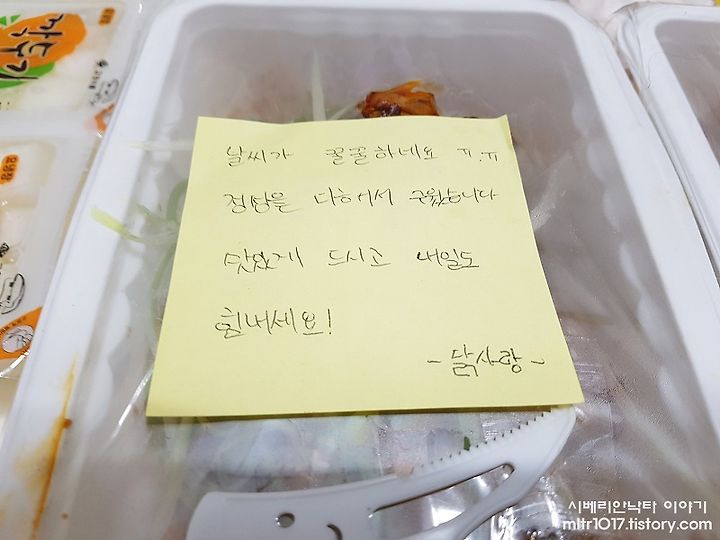 깍두기
날씨가 꿀꿀하네요 ㅠ.ㅠ
정성을 다해서 구웠습니다
맛있게 드시고 내일도
힘내세요!
- 닭사랑 -
시베리안낙타 이야기
mltr1017.tistory.com